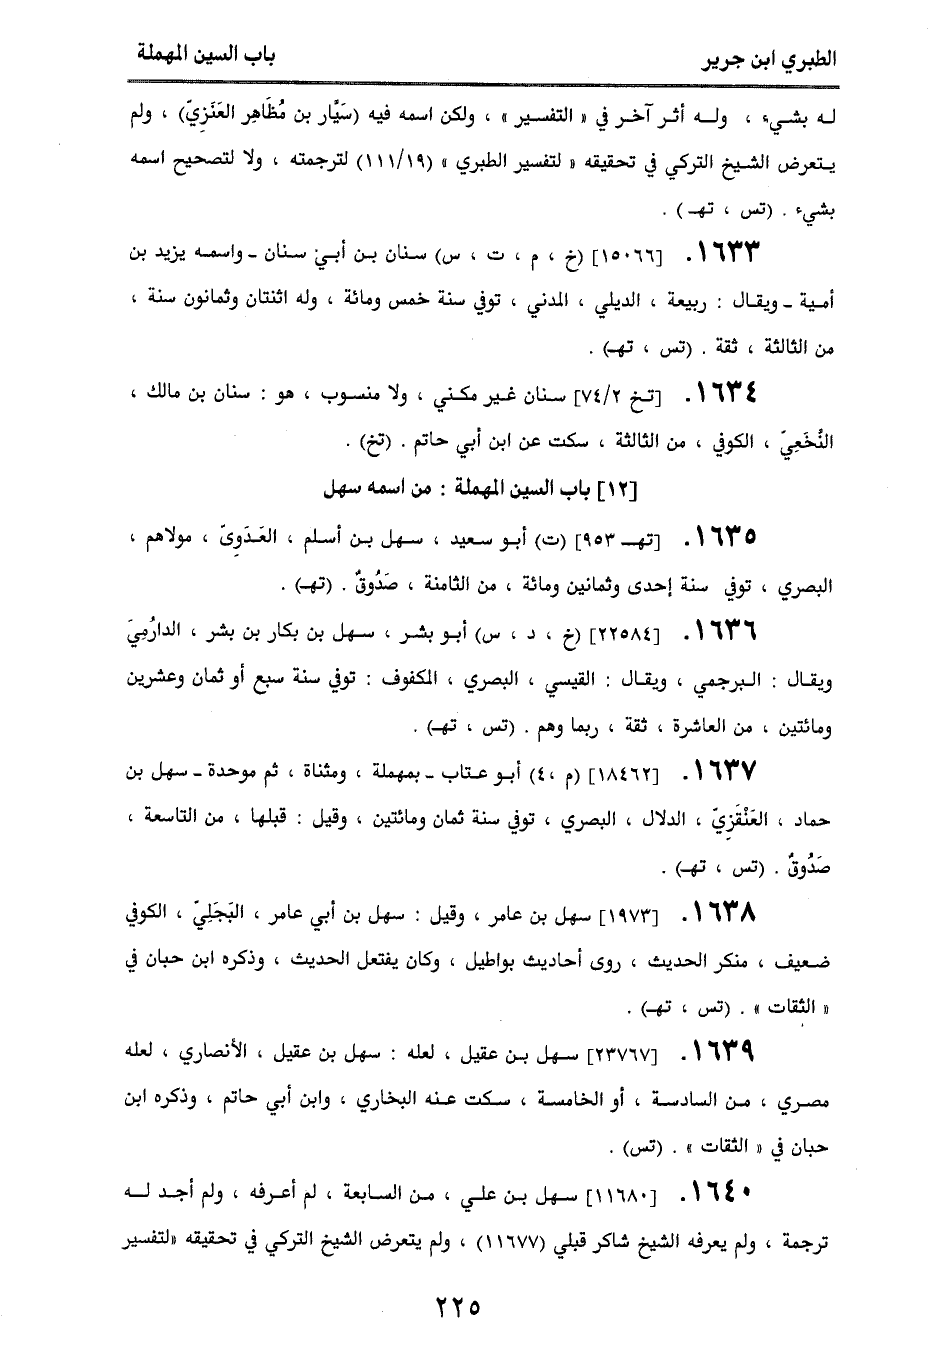 الطبري ابن جرير
باب السين المهملة
له بشيء ، وله أثر آخر في « التفسير » ، ولكن اسمه فيه (سَيَّار بن مُظَاهِر العَنَزِيّ) ، ولم
يتعرض الشيخ التركي في تحقيقه « لتفسير الطبري » (١١١/١٩) لترجمته ، ولا لتصحيح اسمه
بشيء . (تس ، تهـ) .
١٦٣٣. [١٥٠٦٦] (خ ، م ، ت ، س) سنان بن أبي سنان ـ واسمه يزيد بن
أمية ـ ويقال : ربيعة ، الديلي ، المدني ، توفي سنة خمس ومائة ، وله اثنتان وثمانون سنة ،
من الثالثة ، ثقة . (تس ، تهـ) .
١٦٣٤. [تخ ٧٤/٢] سنان غير مكني ، ولا منسوب ، هو : سنان بن مالك ،
النُخَعِيّ ، الكوفي ، من الثالثة ، سكت عن ابن أبي حاتم . (تخ) .
[١٢] باب السين المهملة : من اسمه سهل
١٦٣٥. [تهـ ٩٥٣] (ت) أبو سعيد ، سهل بن أسلم ، العَدَوِيّ ، مولاهم ،
البصري ، توفي سنة إحدى وثمانين ومائة ، من الثامنة ، صَدُوقٌ . (تهـ) .
١٦٣٦. [٢٢٥٨٤] (خ ، د ، س) أبو بشر ، سهل بن بكار بن بشر ، الدارُمِيّ
ويقال : البرجمي ، ويقال : القيسي ، البصري ، المكفوف : توفي سنة سبع أو ثمان وعشرين
ومائتين ، من العاشرة ، ثقة ، ربما وهم . (تس ، تهـ) .
١٦٣٧. [١٨٤٦٢] (م ،٤) أبو عتاب ـ بمهملة ، ومثناة ، ثم موحدة ـ سهل بن
حماد ، العَنْقَزِيّ ، الدلال ، البصري ، توفي سنة ثمان ومائتين ، وقيل : قبلها ، من التاسعة ،
صَدُوقٌ . (تس ، تهـ) .
١٦٣٨. [١٩٧٣] سهل بن عامر ، وقيل : سهل بن أبي عامر ، البَجَلِيّ ، الكوفي
ضعيف ، منكر الحديث ، روى أحاديث بواطيل ، وكان يفتعل الحديث ، وذكره ابن حبان في
« الثقات » . (تس ، تهـ) .
١٦٣٩. [٢٣٧٦٧] سهل بن عقيل ، لعله : سهل بن عقيل ، الأنصاري ، لعله
مصري ، من السادسة ، أو الخامسة ، سكت عنه البخاري ، وابن أبي حاتم ، وذكره ابن
حبان في « الثقات » . (تس) .
١٦٤٠. [١١٦٨٠] سهل بن علي ، من السابعة ، لم أعرفه ، ولم أجد له
ترجمة ، ولم يعرفه الشيخ شاكر قبلي (١١٦٧٧) ، ولم يتعرض الشيخ التركي في تحقيقه «لتفسير
٢٢٥